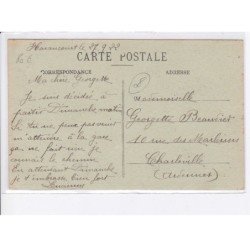 Haraucourt le 27.9.22
CARTE POSTALE
CORRESPONDANCE
ADRESSE
Ma chère Georgette
Je suis décidée à
partir Dimanche matin
Si tu ne peux pas venir
m'attendre à la gare
ça ne fait rien je
connais le chemin
En attendant Dimanche
je t'embrasse bien fort
Mademoiselle
Georgette
10 rue des
Charleville
(Ardennes)